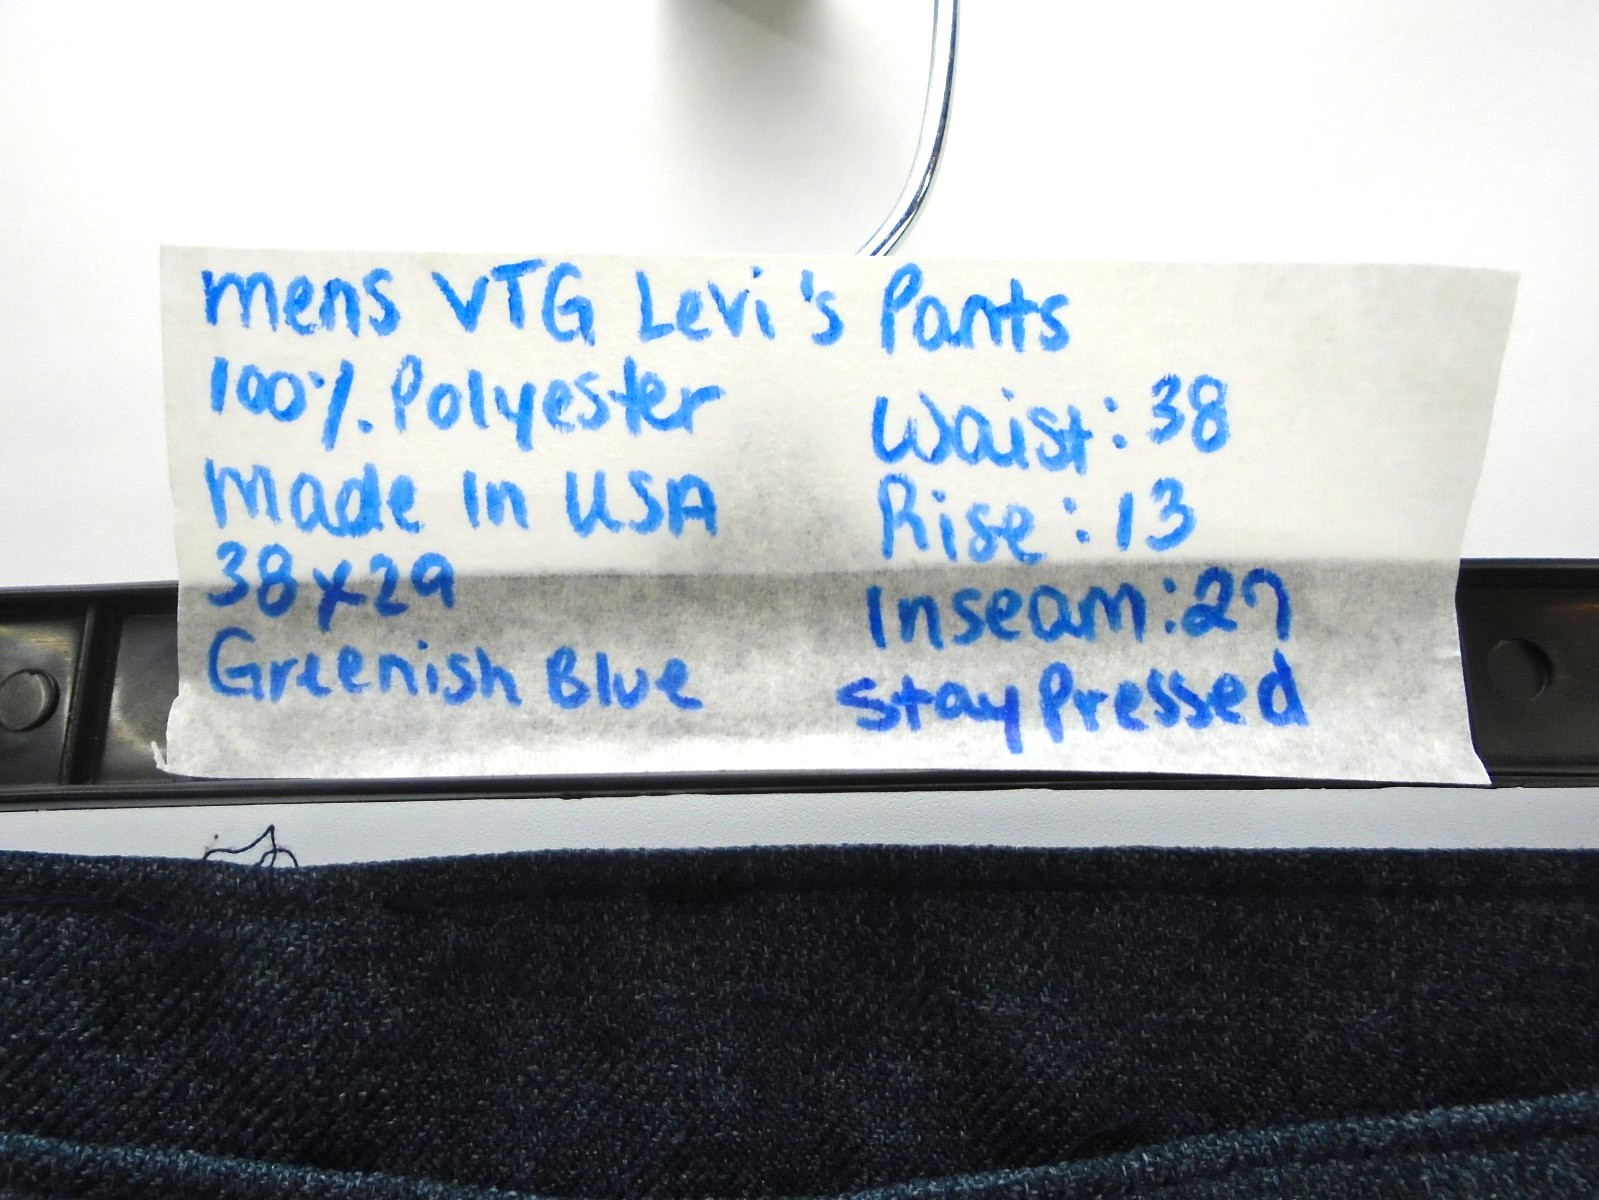 mens VTG Levi's Pants
100% Polyester
Made In USA
38x29
Greenish Blue
Waist: 38
Rise: 13
Inseam: 27
Stay Pressed